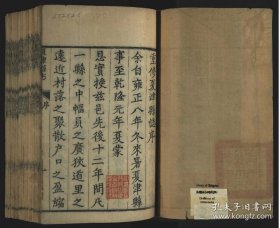 重修夏津縣志序
余自雍正八年冬來署夏津縣
事至乾隆元年夏蒙
恩實授茲邑先後十二年間凡
一縣之中幅員之廣狹道里之
遠近村落之聚散户口之盈縮
序
孔夫子旧书网